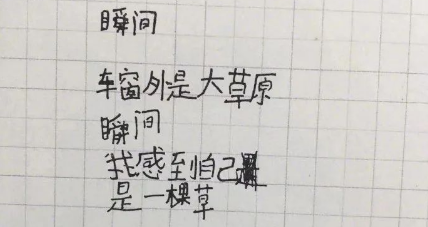 瞬间
车窗外是大草原
瞬间
我感到自己
是一棵草